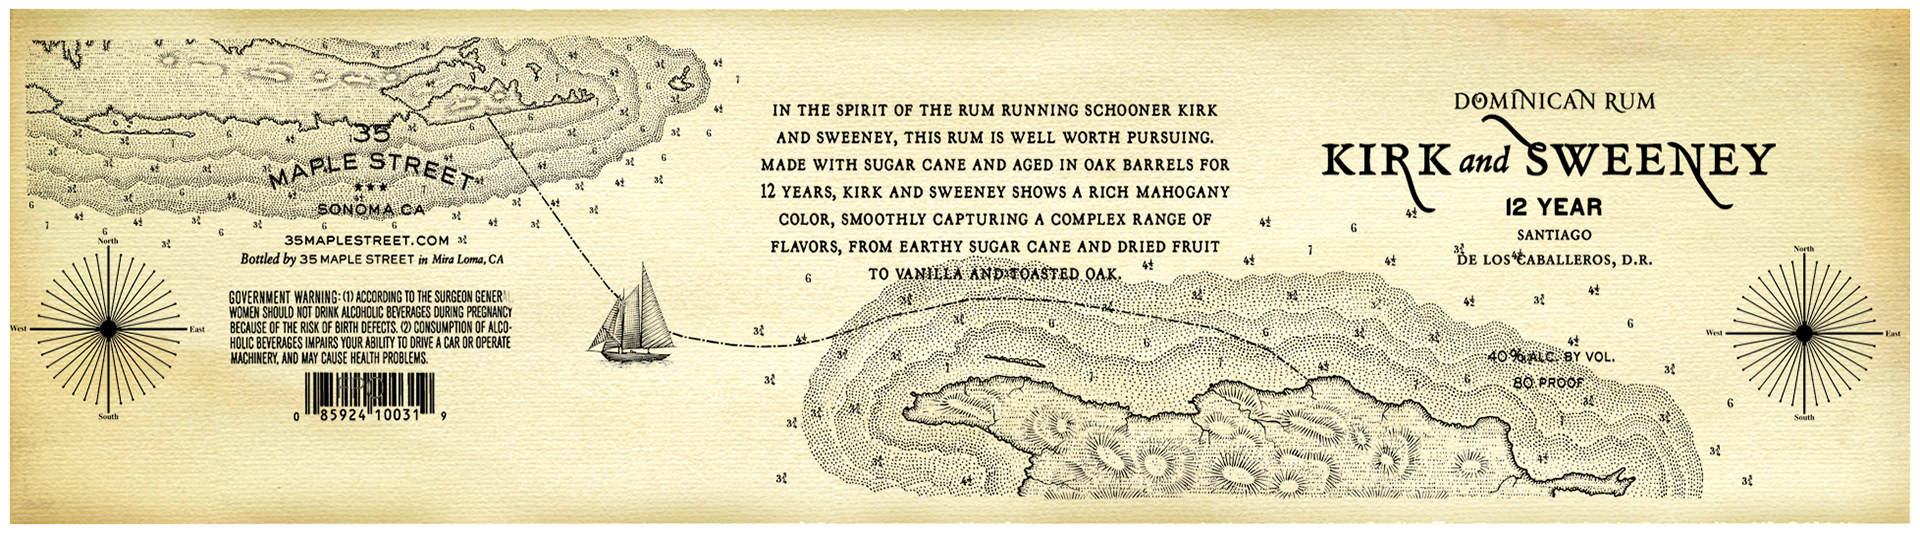 35
MAPLE STREET
SONOMA.CA
35MAPLESTREET.COM
Bottled by 35 MAPLE STREET in Mira Loma, CA
North
West
East
South
GOVERNMENT WARNING: (1) ACCORDING TO THE SURGEON GENERAL
WOMEN SHOULD NOT DRINK ALCOHOLIC BEVERAGES DURING PREGNANCY
BECAUSE OF THE RISK OF BIRTH DEFECTS. (2) CONSUMPTION OF ALCO-
HOLIC BEVERAGES IMPAIRS YOUR ABILITY TO DRIVE A CAR OR OPERATE
MACHINERY, AND MAY CAUSE HEALTH PROBLEMS.
0 85924 10031 9
IN THE SPIRIT OF THE RUM RUNNING SCHOONER KIRK
AND SWEENEY, THIS RUM IS WELL WORTH PURSUING.
MADE WITH SUGAR CANE AND AGED IN OAK BARRELS FOR
12 YEARS, KIRK AND SWEENEY SHOWS A RICH MAHOGANY
COLOR, SMOOTHLY CAPTURING A COMPLEX RANGE OF
FLAVORS, FROM EARTHY SUGAR CANE AND DRIED FRUIT
TO VANILLA AND TOASTED OAK.
DOMINICAN RUM
KIRK and SWEENEY
12 YEAR
SANTIAGO
DE LOS CABALLEROS, D.R.
40% ALC. BY VOL.
80 PROOF
North
West
East
South